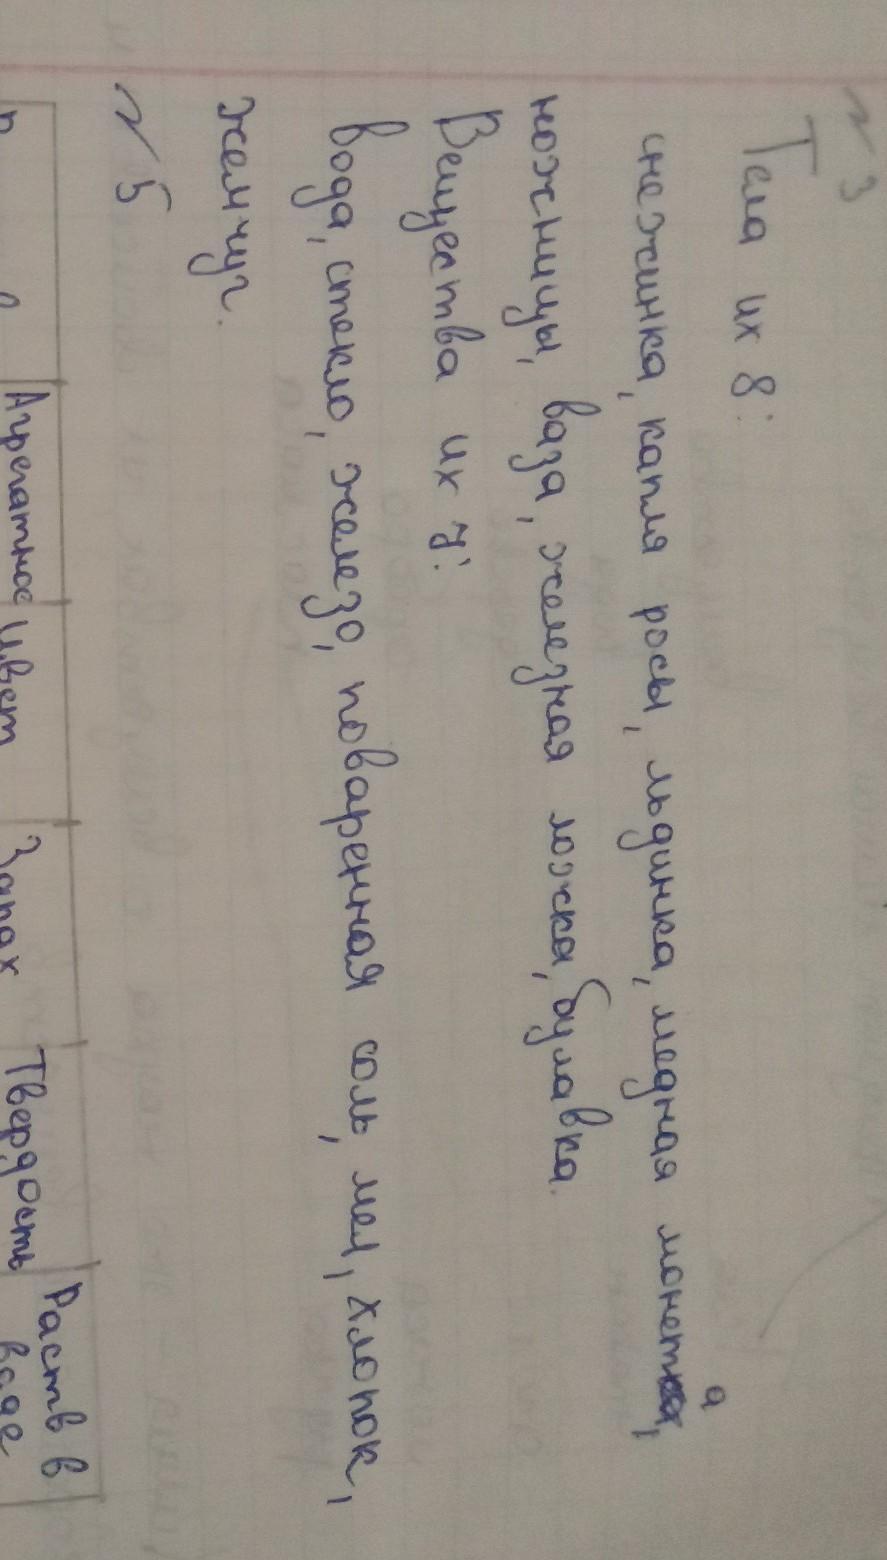 №3
Тела их 8:
снежинка, капля росы, льдинка, медная монета,
ножницы, ваза, железная ложка, булавка.
Вещества их 7:
вода, стекло, железо, поваренная соль, мел, хлопок,
жемчуг.
№5
Агрегатное Цвет Запах Твердость Раств в
воде